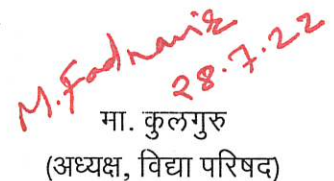 M. Fadnavis
28.7.22
मा. कुलगुरु
(अध्यक्ष, विद्या परिषद)